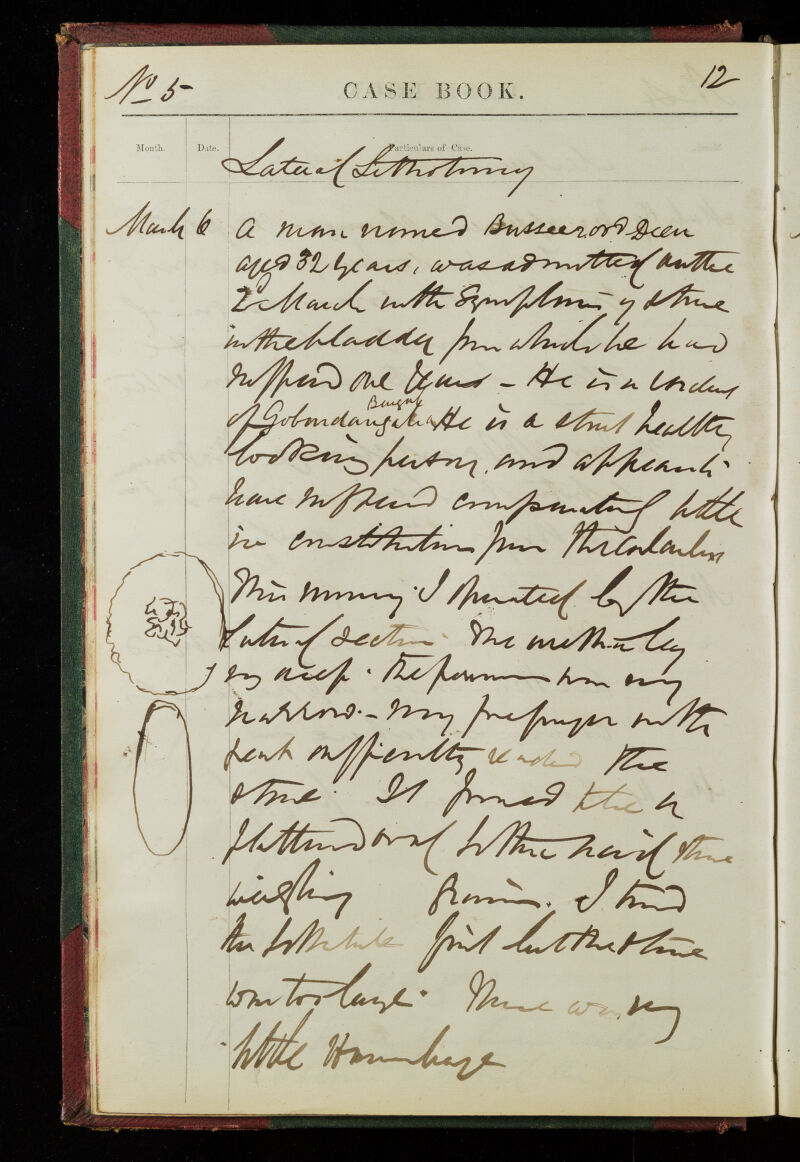 No 5
CASE BOOK.
12
Month.
Date.
Particulars of Case.
Lateral Lithotomy
March 6
A man named Busseerood Deen
aged 32 years, was admitted on the
2 March with Symptoms of stone
in the bladder from which he had
suffered one year - He is a
of Bengal He is a stout healthy
looking person, and appears to
have suffered comparatively little
in constitution from the Calculus
This morning I operated by the
lateral section The urethra lay
very deep. The perineum was very
narrow. - my forefinger with
great difficulty reached the
stone. It proved to be a
flattened oval stone
weighing grains. I tried
the first but the stone
was too large. There was very
little Haemorrhage